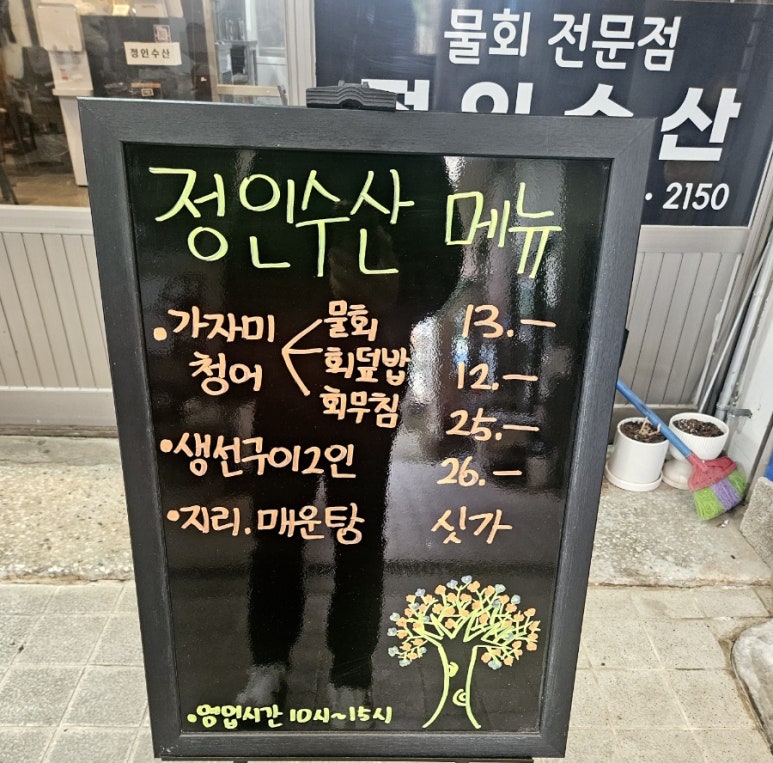 정인수산
물회 전문점
정인수산
· 2150
정인수산 메뉴
• 가자미 물회 13.-
청어 회덮밥 12.-
회무침 25.-
• 생선구이2인 26.-
• 지리.매운탕 싯가
• 영업시간 10시~15시